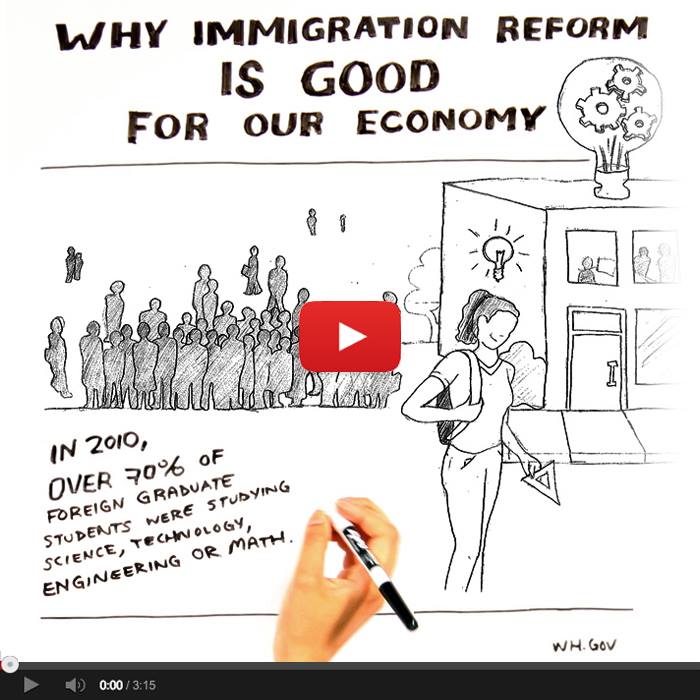 WHY IMMIGRATION REFORM
IS GOOD
FOR OUR ECONOMY
IN 2010,
OVER 70% OF
FOREIGN GRADUATE
STUDENTS WERE STUDYING
SCIENCE, TECHNOLOGY,
ENGINEERING OR MATH.
WH.GOV
0:00 / 3:15